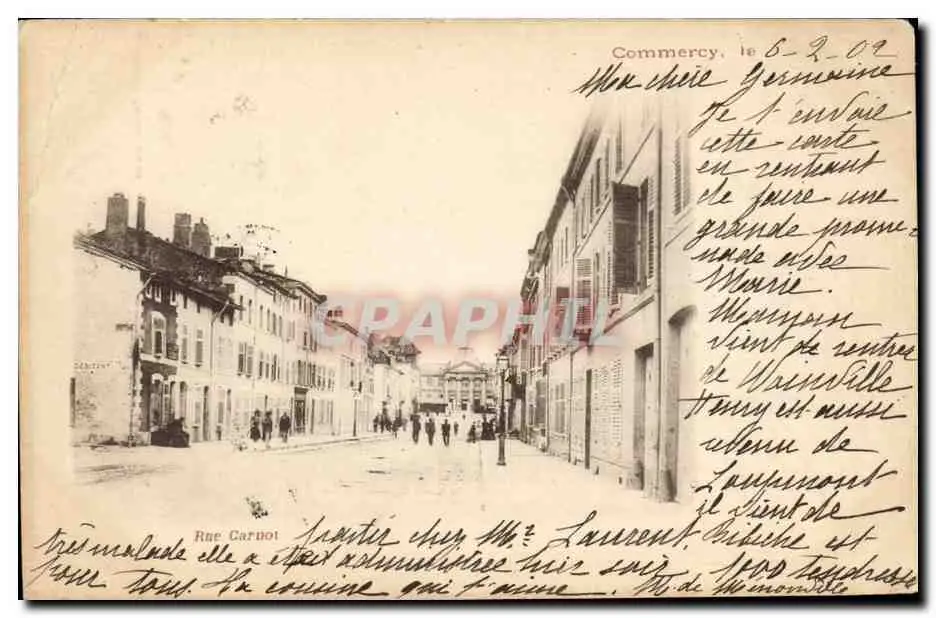 Commercy, le 6-2-02
Ma chère Germaine
Je t'envoie
cette carte
en rentrant
de faire une
grande prome-
nade avec
Marie.
Maman
vient de rentrer
de Vainville
Henry est aussi
revenu de
Loupmont
il vient de
CRAPHIL
DENTIST
Rue Carnot
partir chez Mr Laurent. Bibiche est
très malade elle a été administrée hier soir. 1000 tendresses
pour tous. Ta cousine qui t'aime. M. de